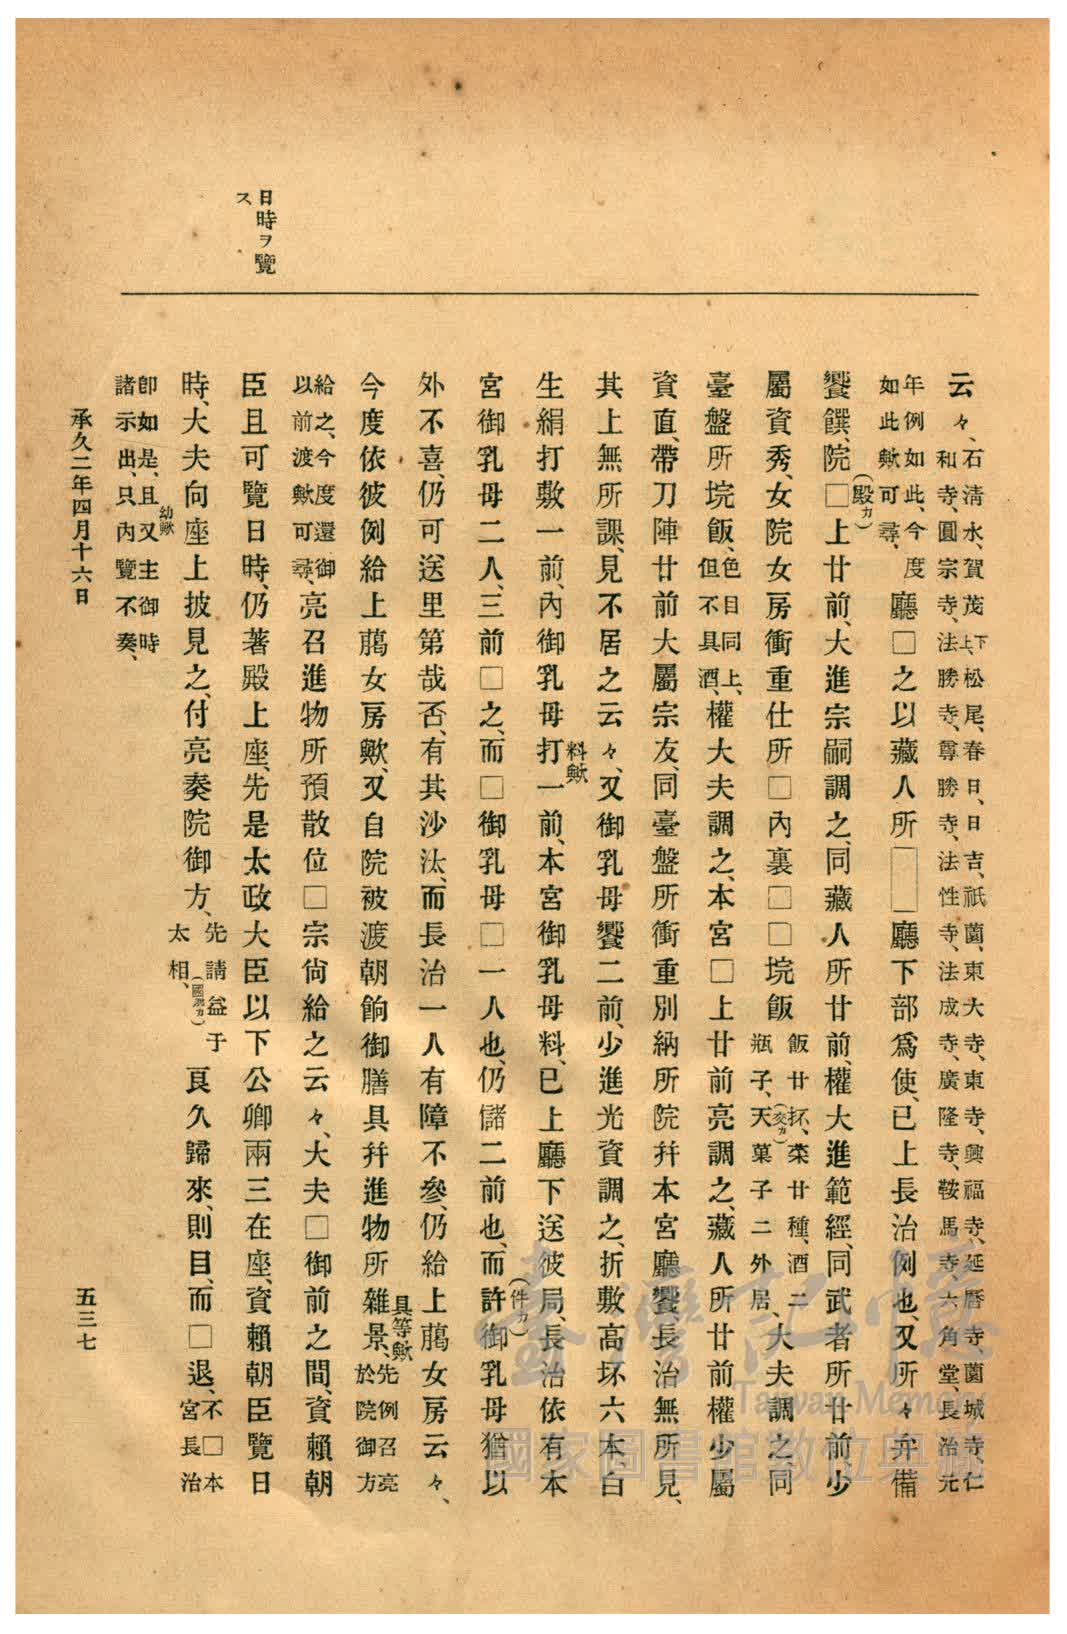 日時ヲ覽
ス
云々、石清水、賀茂下上、松尾、春日、日吉、祇薗、東大寺、東寺、興福寺、延曆寺薗城寺、仁
和寺、圓宗寺、法勝寺、尊勝寺、法性寺、法成寺、廣隆寺、鞍馬寺、六角堂、長治元
年例如此、今度
如此歟可尋、廳□之以藏人所□廳下部爲使、已上長治例也、又所々弁備
饗饌、院□(殿カ)上廿前、大進宗嗣調之、同藏人所廿前、權大進範經、同武者所廿前少
屬資秀、女院女房衝重仕所□內裏□□垸飯飯廿坏、菜廿種、酒二瓶子、天(交カ)菓子二外居、大夫調之同
臺盤所垸飯、色目同上、但不具酒、權大夫調之、本宮□上廿前亮調之、藏人所廿前權少屬
資直、帶刀陣廿前大屬宗友、同臺盤所衝重別納所院幷本宮廳饗長治無所見、
其上無所課、見不居之云々、又御乳母饗二前、少進光資調之、折敷高坏六本白
生絹打敷一前、內御乳母打料歟一前、本宮御乳母料、已上廳下、送彼局、長治依有本
宮御乳母二人、三前□之、而□御乳母□一人也、仍儲二前也、而許(件カ)御乳母猶以
外不喜、仍可送里第哉否、有其沙汰、而長治一人有障不參、仍給上﨟女房云々、
今度依彼例給上﨟女房歟、又自院被渡朝餉御膳具幷進物所雜景具等歟、先例召亮於院御方
給之、今度還御
以前渡歟可尋、亮召進物所預散位□宗尙給之云々、大夫□御前之間、資賴朝
臣且可覽日時、仍著殿上座、先是太政大臣以下公卿兩三在座、資賴朝臣覽日
時、大夫向座上披見之、付亮奏院御方、先請益于太相(國脫カ)、良久歸來、則目、而□退、不□本宮長治
卽如是、且又主幼歟御時
諸示出、只內覽不奏、
承久二年四月十六日
五三七
臺灣記憶
Taiwan Memory
國家圖書館數位典藏